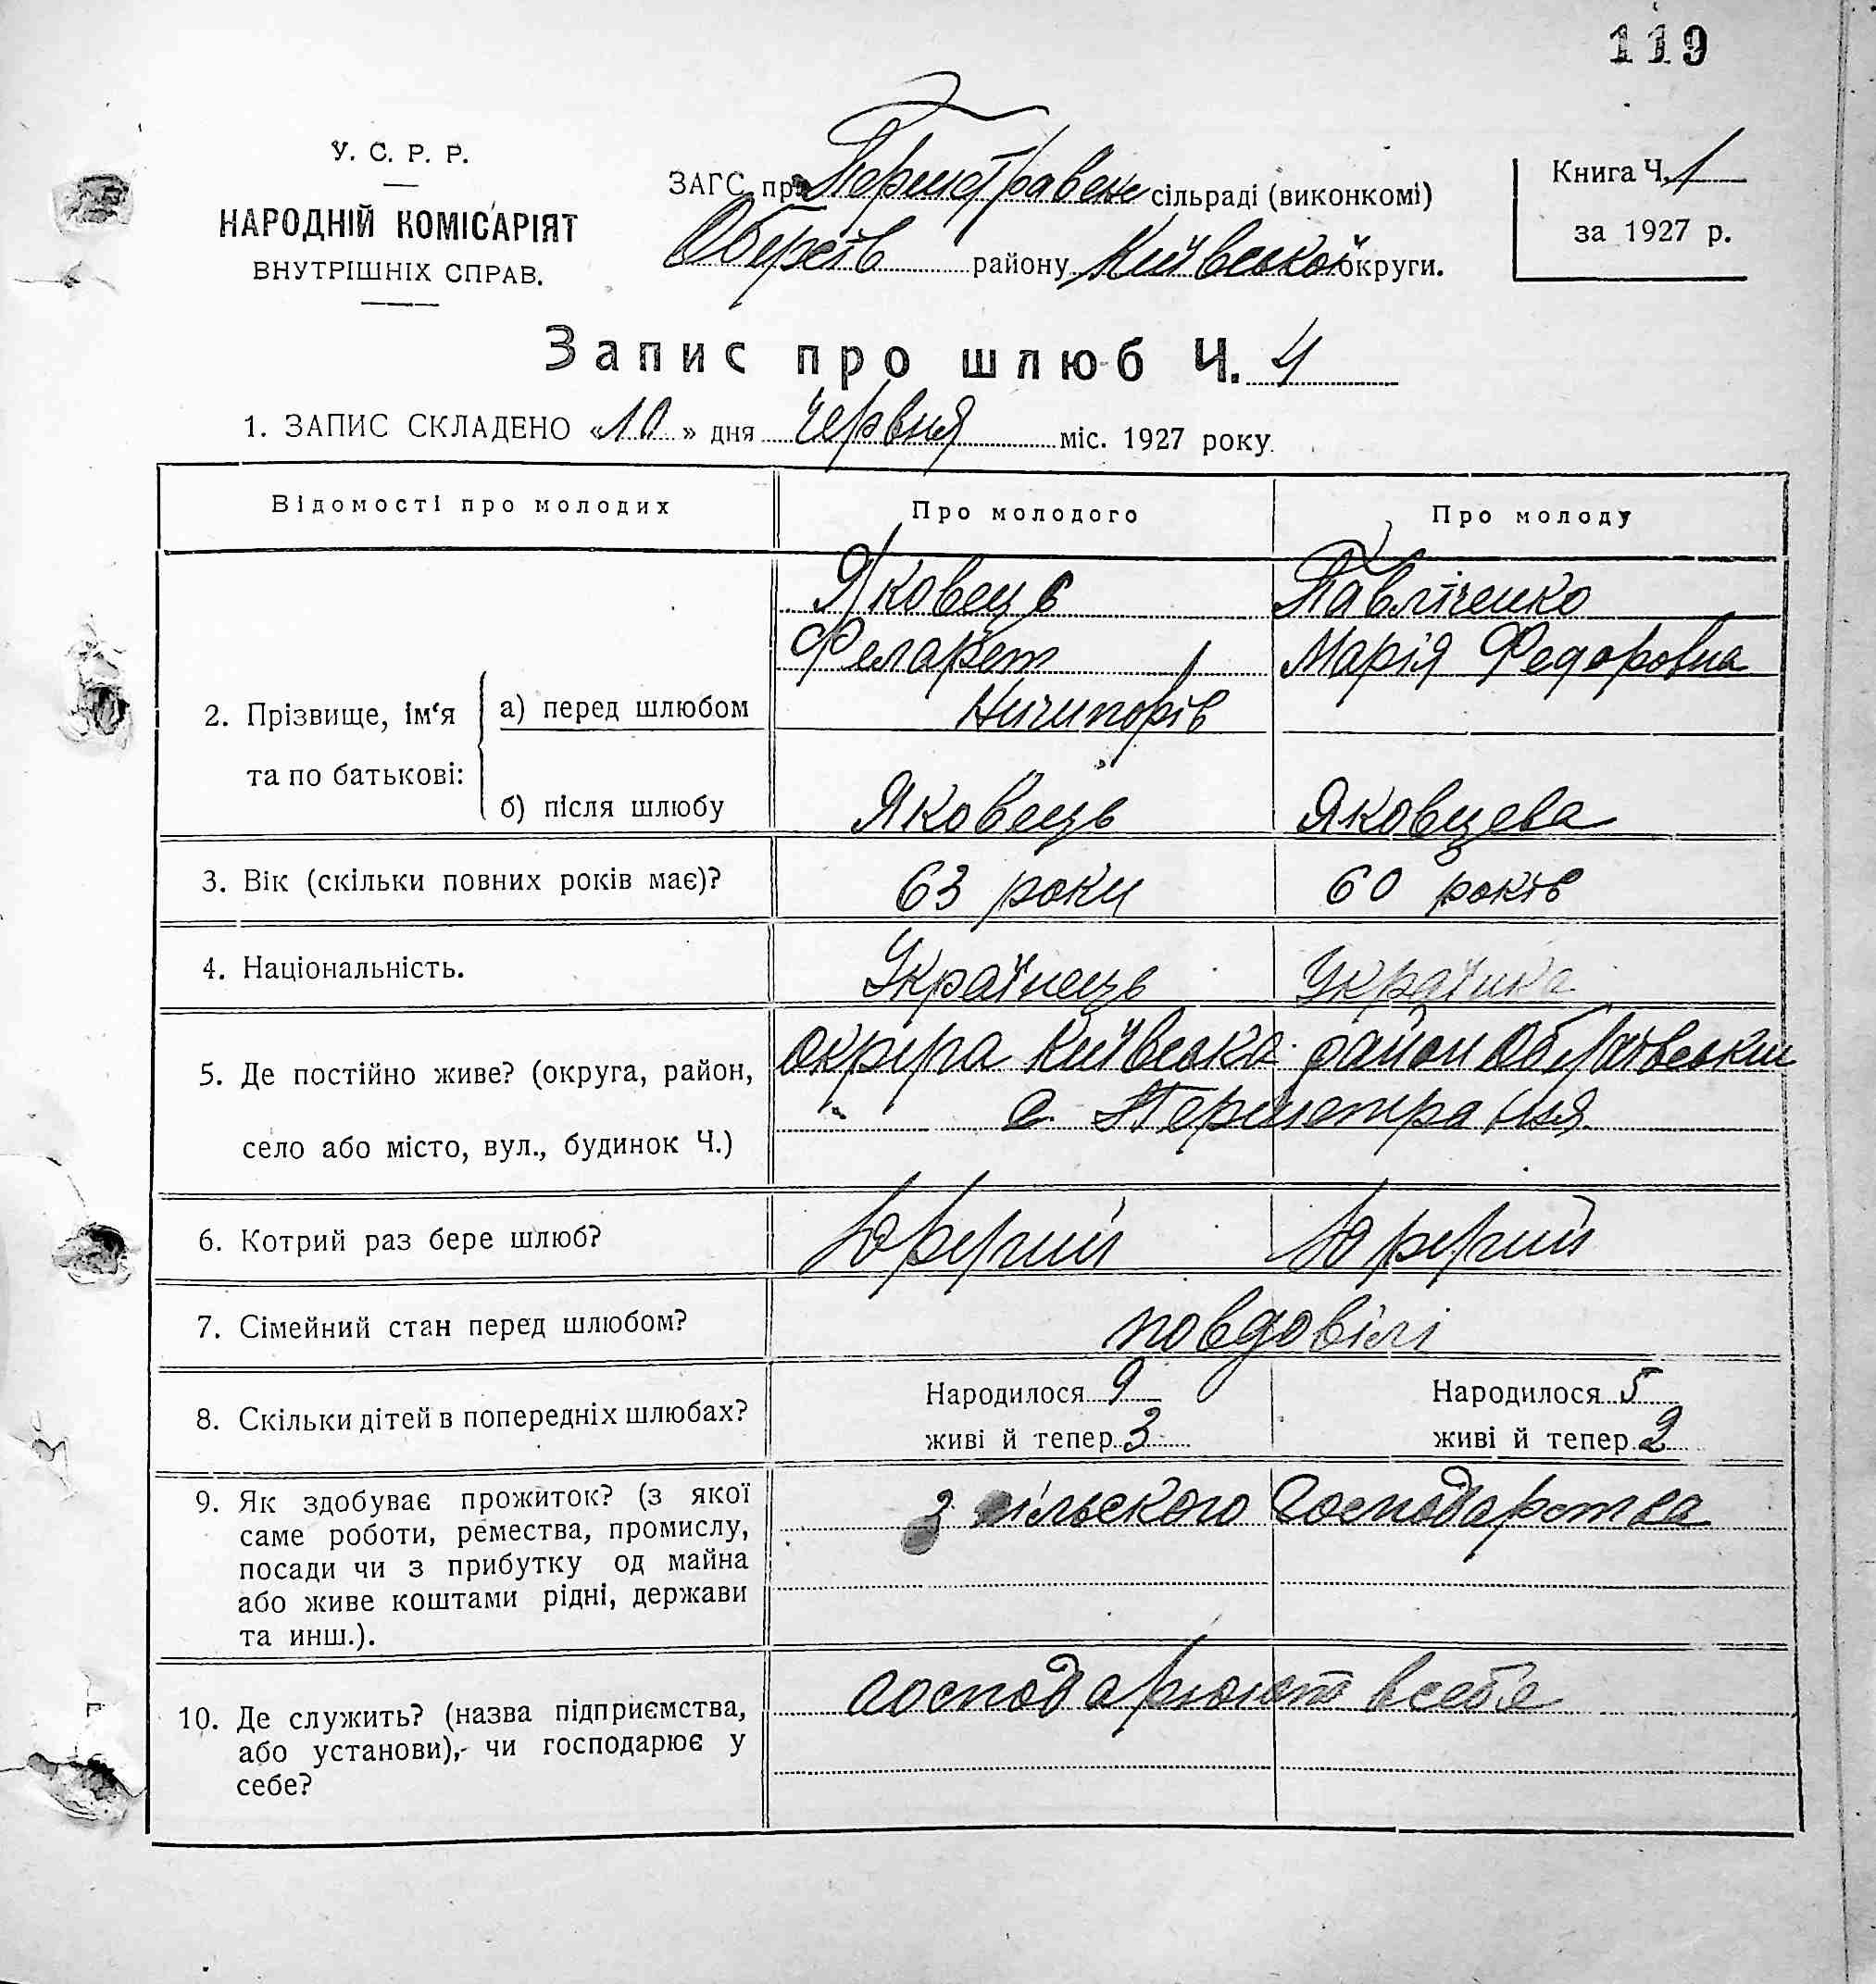 119
У. С. Р. Р.
НАРОДНІЙ КОМІСАРІЯТ
ВНУТРІШНІХ СПРАВ.
ЗАГС при Першетравен сільраді (виконкомі)
району Київської округи.
Книга Ч. 1
за 1927 р.
Запис про шлюб Ч. 4
1. ЗАПИС СКЛАДЕНО «10» дня червня міс. 1927 року.
Відомості про молодих Про молодого Про молоду
2. Прізвище, ім'я та по батькові:
а) перед шлюбом
Яковець Павліченко
Филарет Марія Федоровна
Ничипорів
б) після шлюбу Яковець Яковцева
3. Вік (скільки повних років має)? 63 роки 60 років
4. Національність. Українець Українка
5. Де постійно живе? (округа, район, округа Київська район
село або місто, вул., будинок Ч.) с.
6. Котрий раз бере шлюб?
7. Сімейний стан перед шлюбом? повдовілі
8. Скільки дітей в попередніх шлюбах? Народилося 9 Народилося 5
живі й тепер 3 живі й тепер 2
9. Як здобуває прожиток? (з якої з сільского господарства
саме роботи, ремества, промислу,
посади чи з прибутку од майна
або живе коштами рідні, держави
та инш.).
10. Де служить? (назва підприємства, господарюють в себе
або установи), чи господарює у
себе?